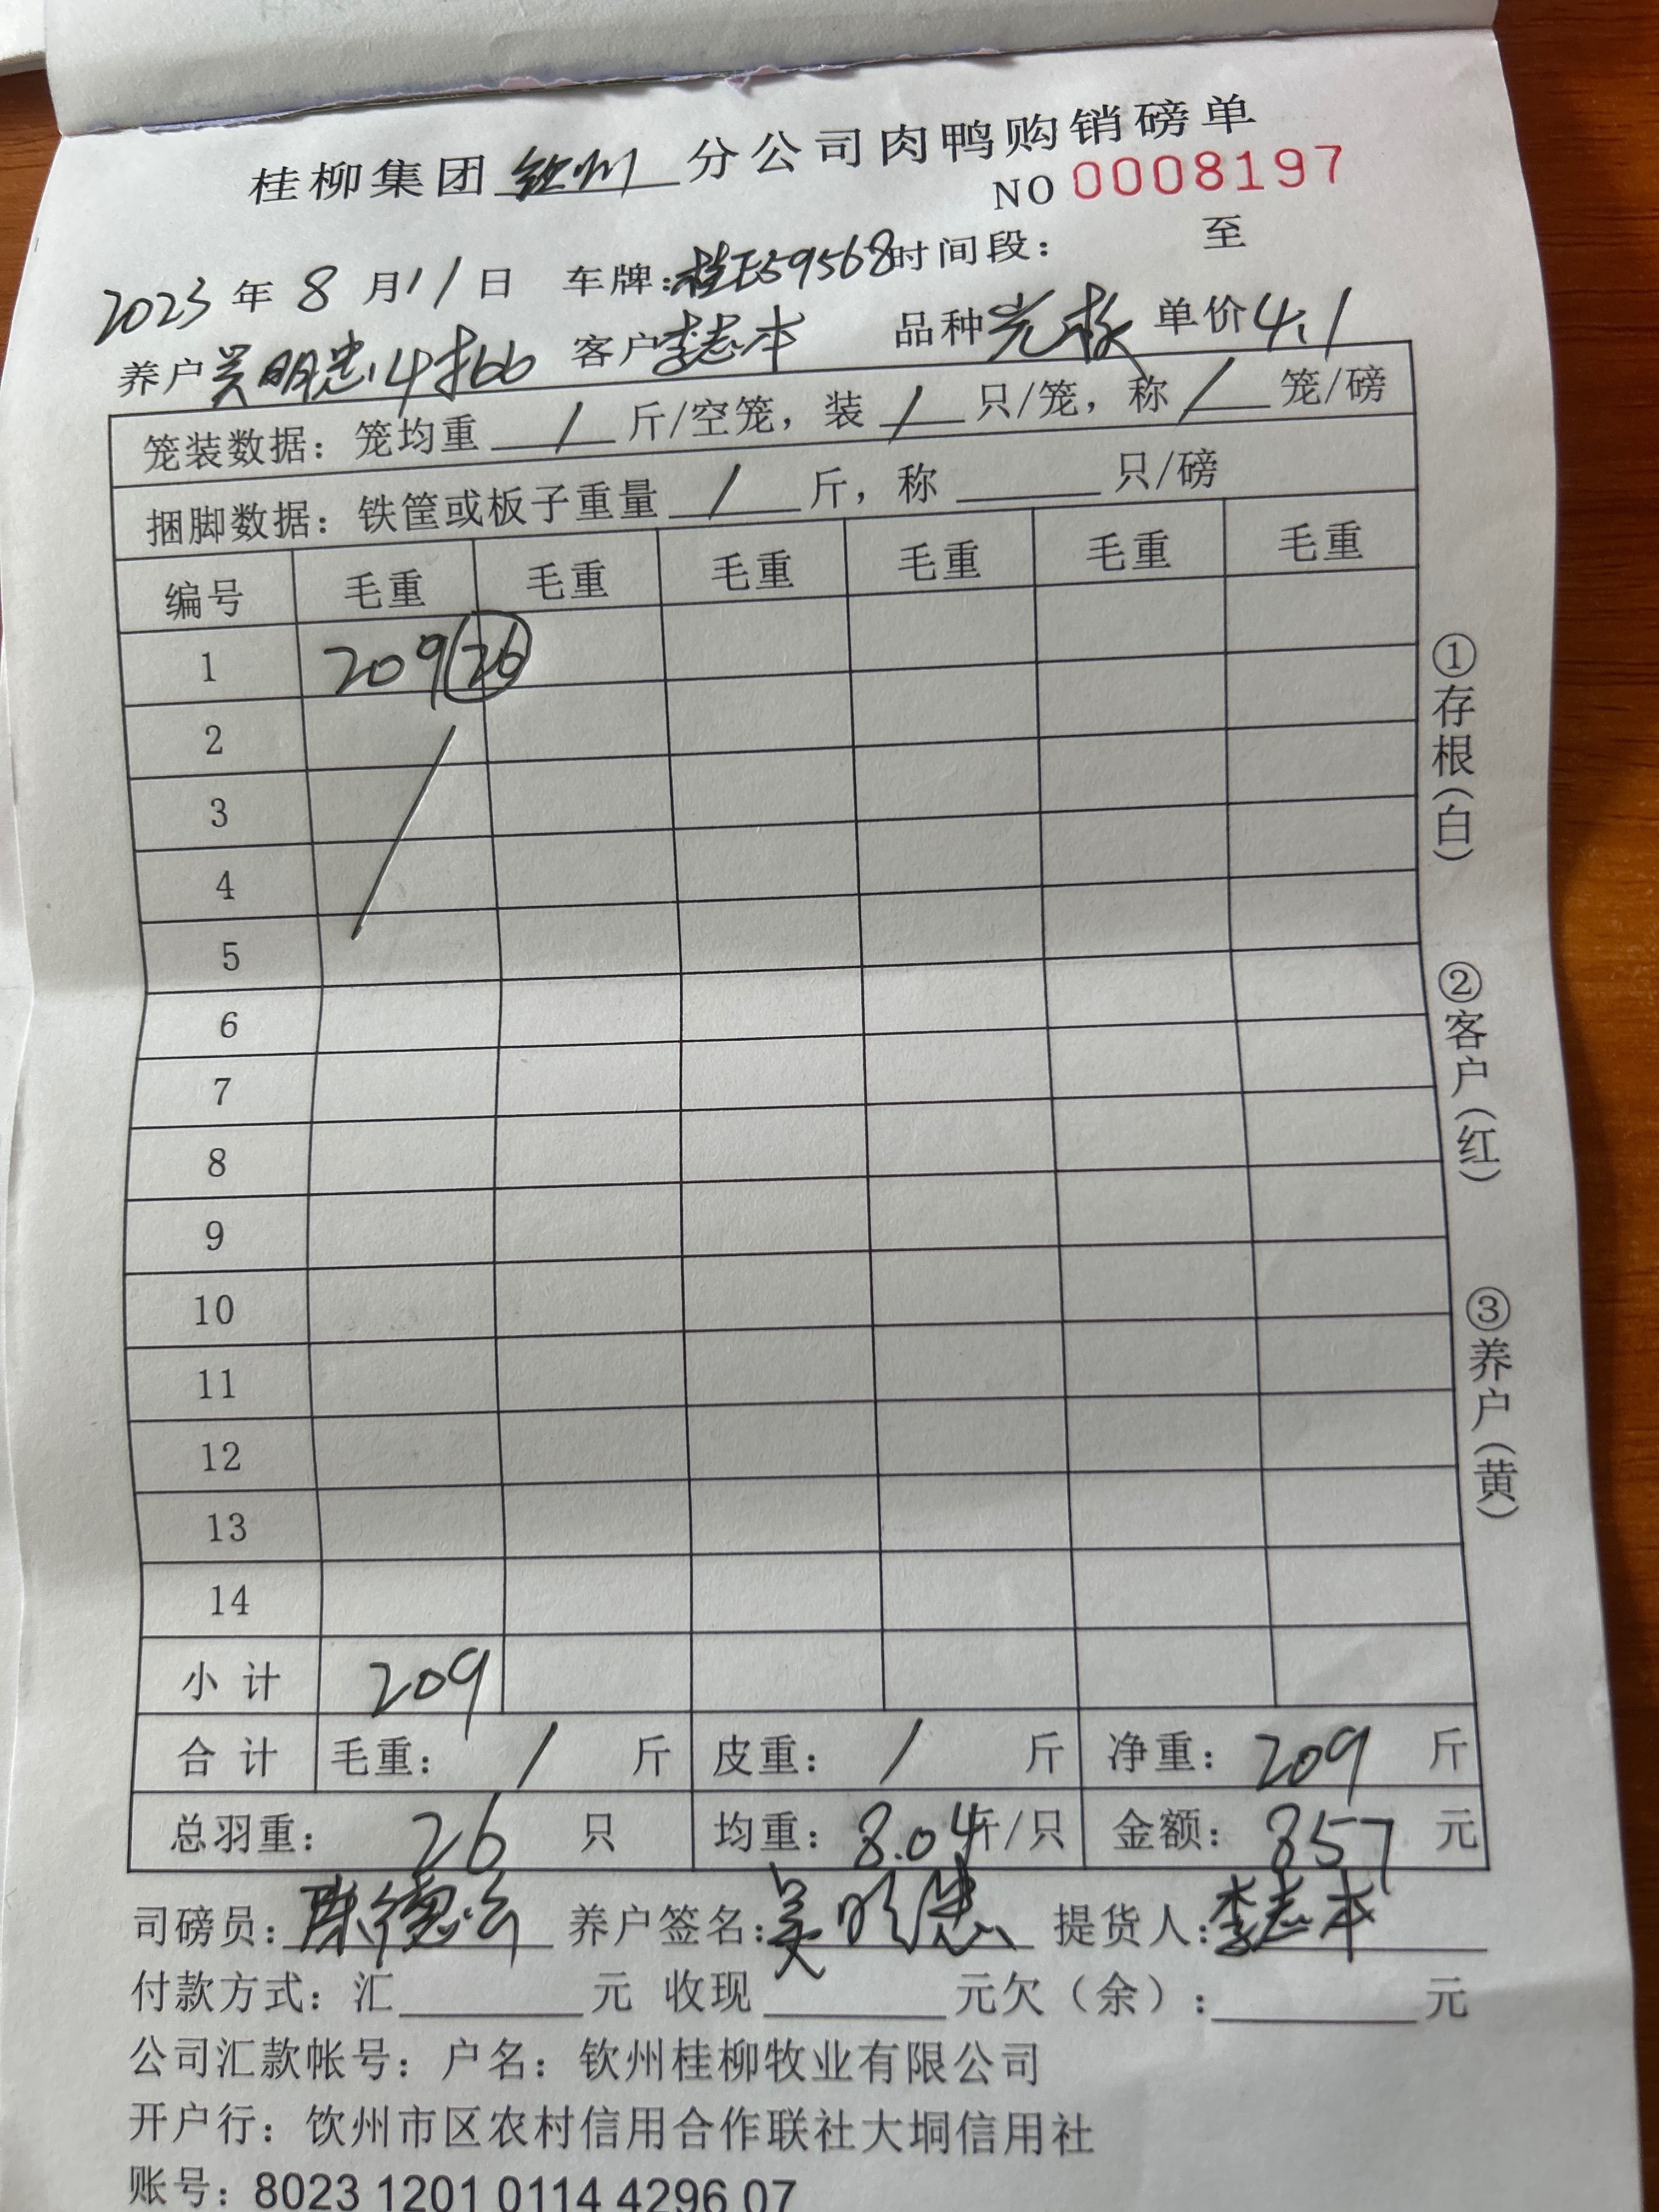 桂柳集团钦州分公司肉鸭购销磅单
NO 0008197
2023年8月11日 车牌:桂E59568时间段: 至
养户吴明忠 客户李志本 品种 单价4.1
笼装数据: 笼均重 / 斤/空笼, 装 / 只/笼, 称 / 笼/磅
捆脚数据: 铁筐或板子重量 / 斤, 称 只/磅
编号 毛重 毛重 毛重 毛重 毛重 毛重
1 209 26
2
3
4
5
6
7
8
9
10
11
12
13
14
小计 209
合计 毛重: / 斤 皮重: / 斤 净重: 209 斤
总羽重: 26 只 均重: 8.04斤/只 金额: 857 元
司磅员: 养户签名:吴明忠 提货人:李志本
付款方式: 汇 元 收现 元欠(余): 元
公司汇款帐号: 户名: 钦州桂柳牧业有限公司
开户行: 饮州市区农村信用合作联社大垌信用社
账号: 8023 1201 0114 4296 07
①存根(白)
②客户(红)
③养户(黄)